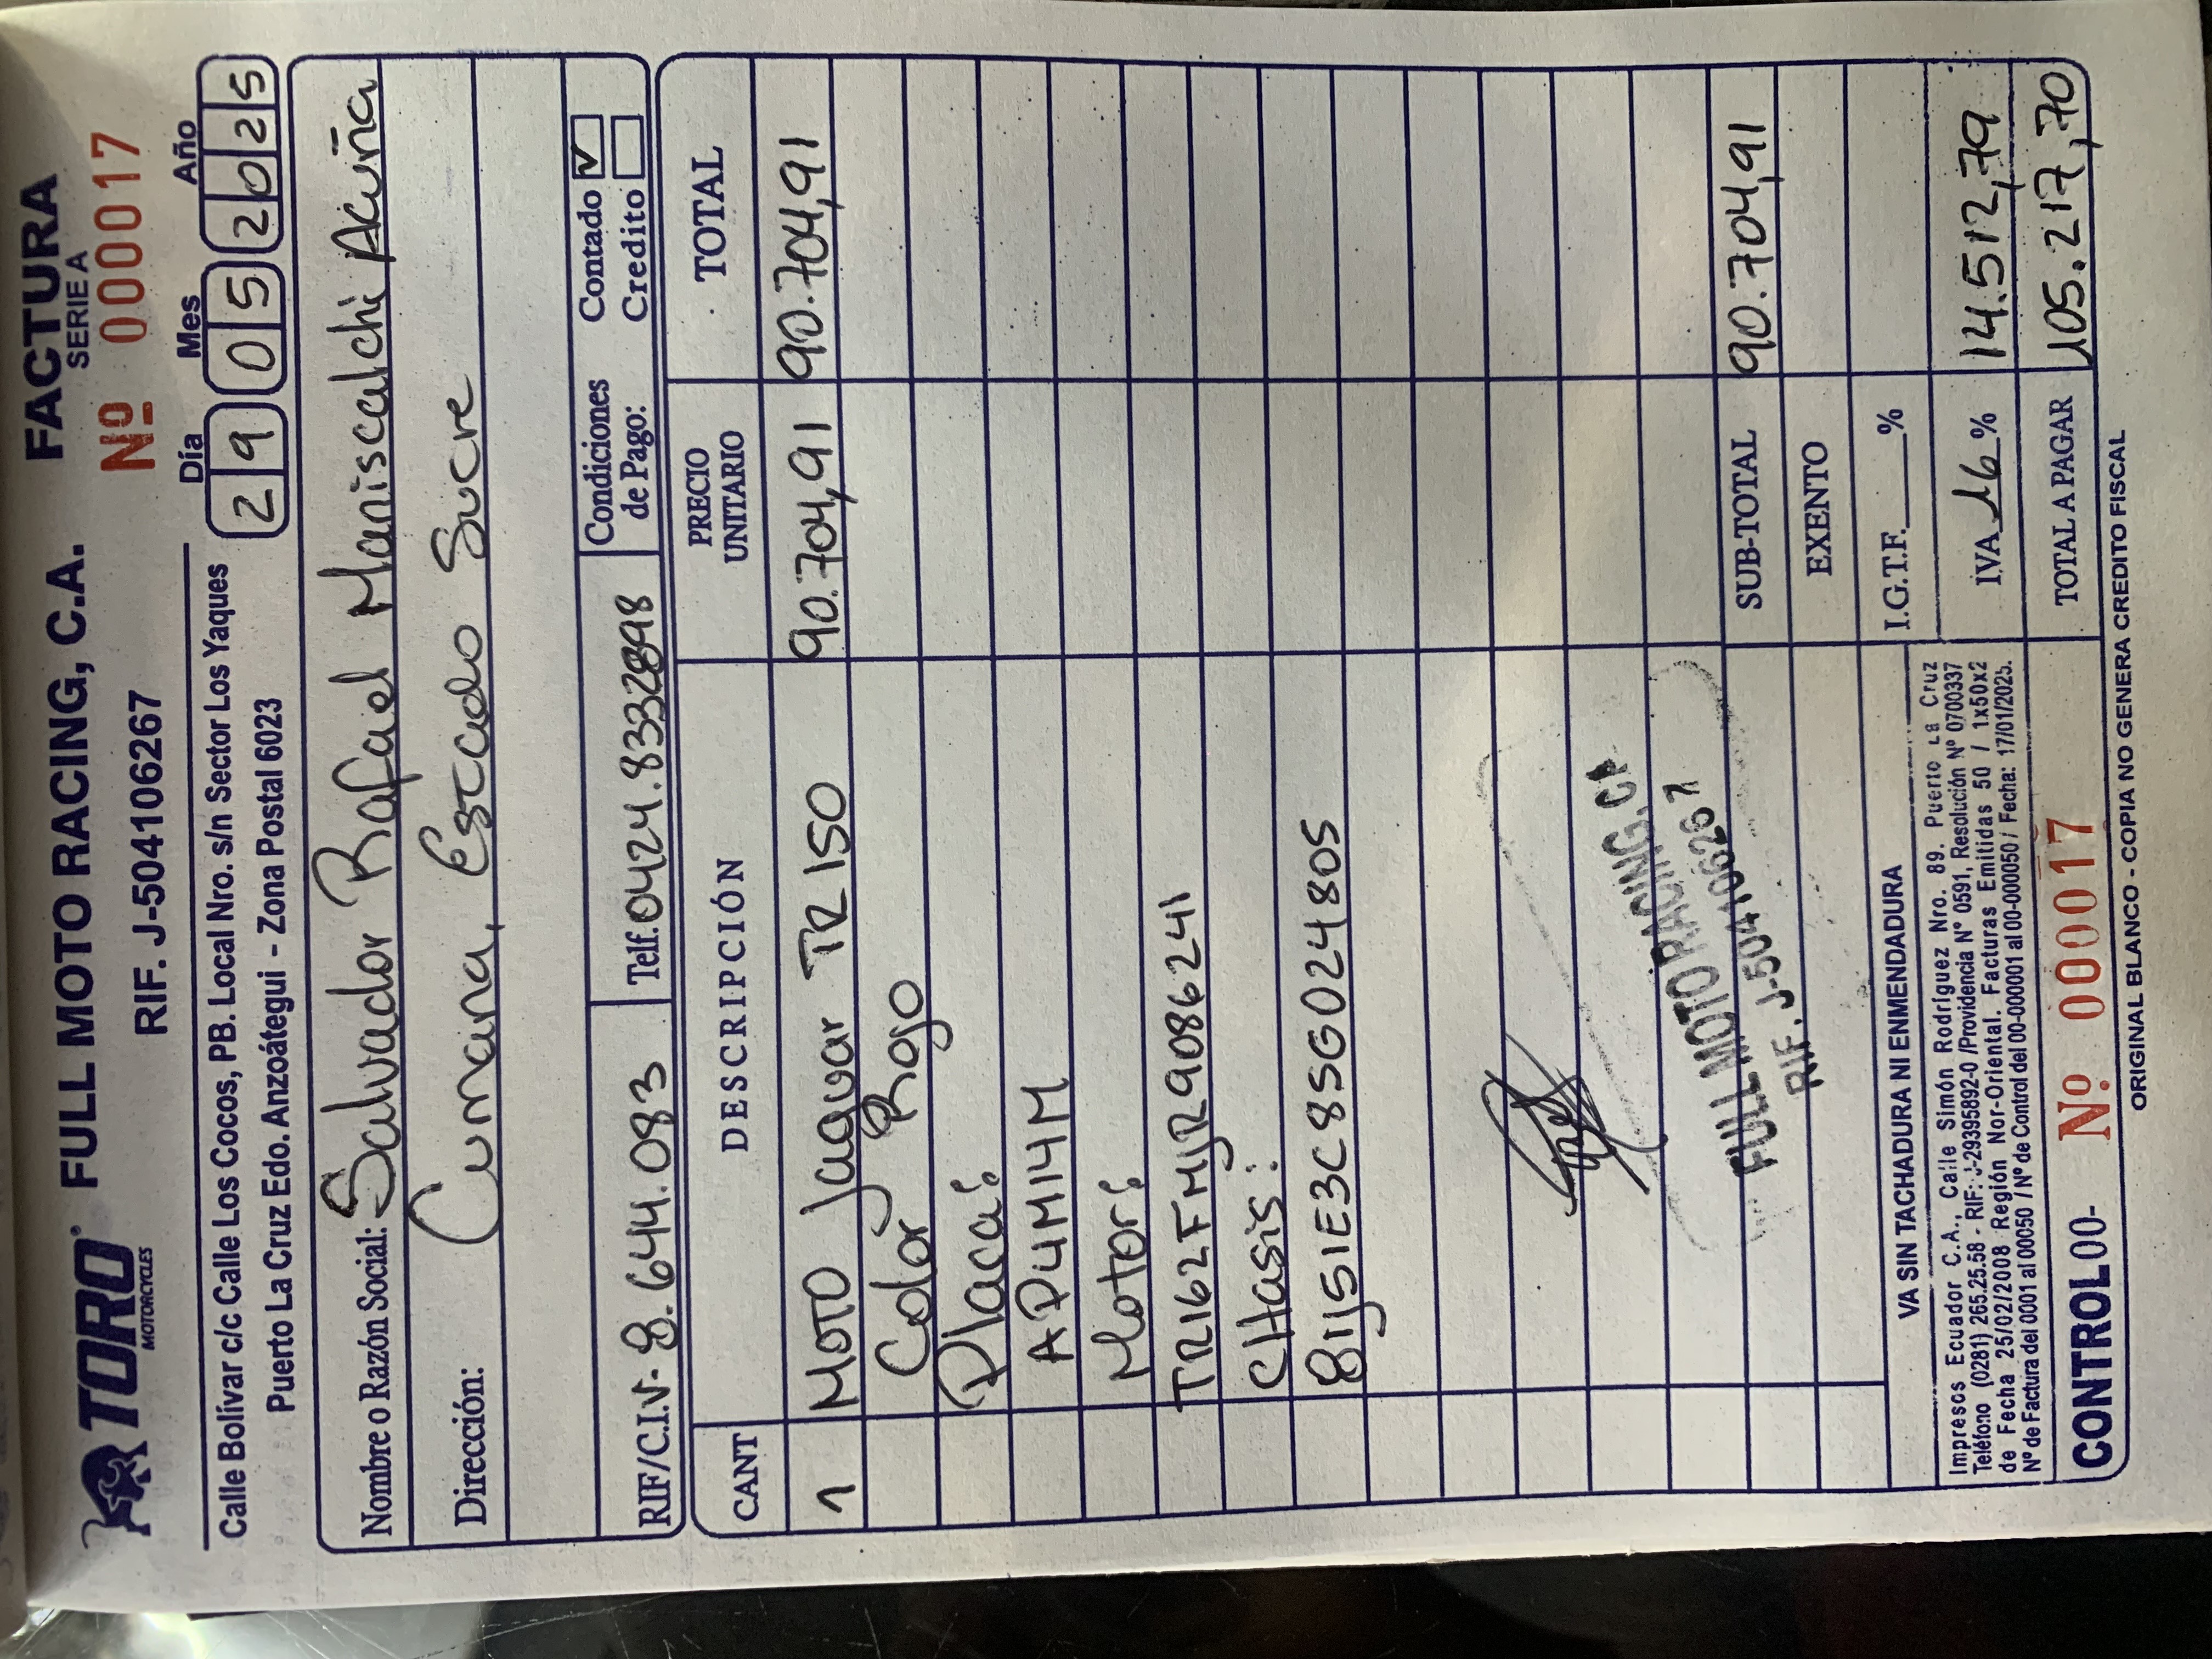 TORO
MOTORCYCLES
FULL MOTO RACING, C.A.
RIF. J-504106267
FACTURA
SERIE A
Nº 000017
Calle Bolívar c/c Calle Los Cocos, PB. Local Nro. s/n Sector Los Yaques
Puerto La Cruz Edo. Anzoátegui - Zona Postal 6023
Día Mes Año
29 05 2025
Nombre o Razón Social: Salvador Rafael Maniscalchi Acuña
Dirección: Cumana, Estado Sucre
RIF/C.I.V- 8.644.083 Telf. 0424.8332898 Condiciones de Pago: Contado ✓
Credito
CANT DESCRIPCIÓN PRECIO UNITARIO TOTAL
1 MOTO Jaguar TR150 90.704,91 90.704,91
Color Rojo
Placa:
AP4M14M
Motor:
TR162FMJR9086241
CHasis:
81JS1E3C8SG024805
FULL MOTO RACING, CA
FULL MOTO RACING
RIF. J-504106267
SUB-TOTAL 90.704,91
EXENTO
I.G.T.F. ___%
IVA 16 % 14.512,79
TOTAL A PAGAR 105.217,70
VA SIN TACHADURA NI ENMENDADURA
Impresos Ecuador C.A., Calle Simón Rodríguez Nro. 89. Puerto La Cruz
Teléfono (0281) 265.25.58 - RIF: J-29395892-0 /Providencia N° 0591, Resolución N° 0700337
de Fecha 25/02/2008 Región Nor-Oriental. Facturas Emitidas 50 / 1x50x2
Nº de Factura del 0001 al 00050 / Nº de Control del 00-000001 al 00-000050 / Fecha: 17/01/2025.
CONTROL 00- Nº 000017
ORIGINAL BLANCO - COPIA NO GENERA CREDITO FISCAL